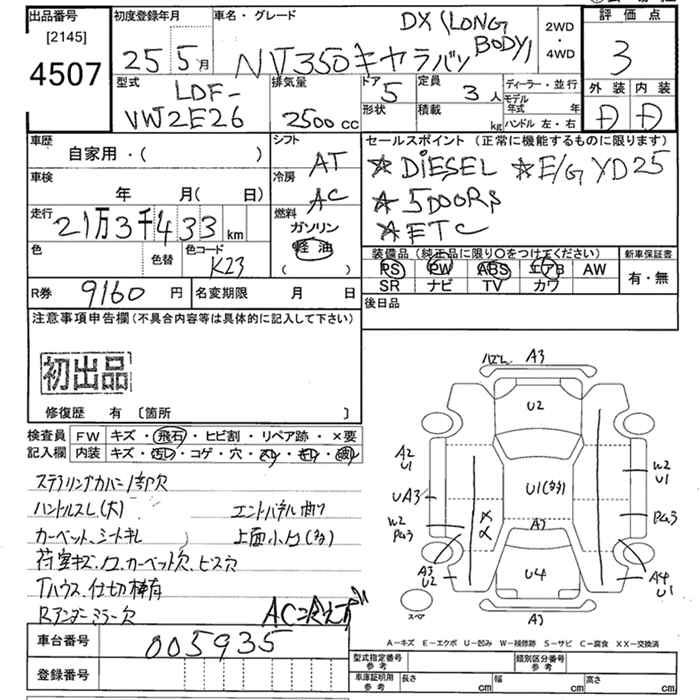 出品番号
[2145]
4507
初度登録年月
25 5月
車名・グレード
NV350キャラバン
DX (LONG
BODY)
2WD
・
4WD
評価点
3
型式
LDF-
VW2E26
排気量
2500cc
ドア
5
形状
定員
3人
積載
kg
ディーラー・並行
モデル
年式 年
ハンドル 左・右
外装
内装
D D
車歴
自家用・( )
シフト
AT
車検
年 月( 日)
冷房
AC
走行
21万3千433km
燃料
ガソリン
軽油
( )
色
色替
色コード
K23
セールスポイント (正常に機能するものに限ります)
☆DIESEL ☆E/G YD25
☆5DOORS
☆ETC
装備品(純正品に限り○をつけてください)
PS PW ABS エアB AW
SR ナビ TV カワ
新車保証書
有・無
R券 9160円
名変期限 月 日
後日品
注意事項申告欄(不具合内容等は具体的に記入して下さい)
初出品
修復歴 有 〔箇所 〕
検査員
記入欄
FW キズ・飛石・ヒビ割・リペア跡・×要
内装 キズ・汚レ・コゲ・穴・スレ・キレ・破レ
ステアリングカバー1部欠
ハンドルスレ(大) エンドパネル曲り
カーペット、シートキレ
荷室キズ、凹、カーペット穴、ビス穴
Tハウス、仕切棒有
Rアンダーミラー欠
AC冷えず
車台番号 005935
登録番号
A3
U2
A2
U1
UA3
W2
PG3
A3
U2
U1(多)
W2
U1
PG3
A4
U1
U4
スペア
A3
A－キズ E－エクボ U－凹み W－補修跡 S－サビ C－腐食 XX－交換済
型式指定番号
参考
類別区分番号
参考
車庫証明用
参考
長さ cm
幅 cm
高さ cm